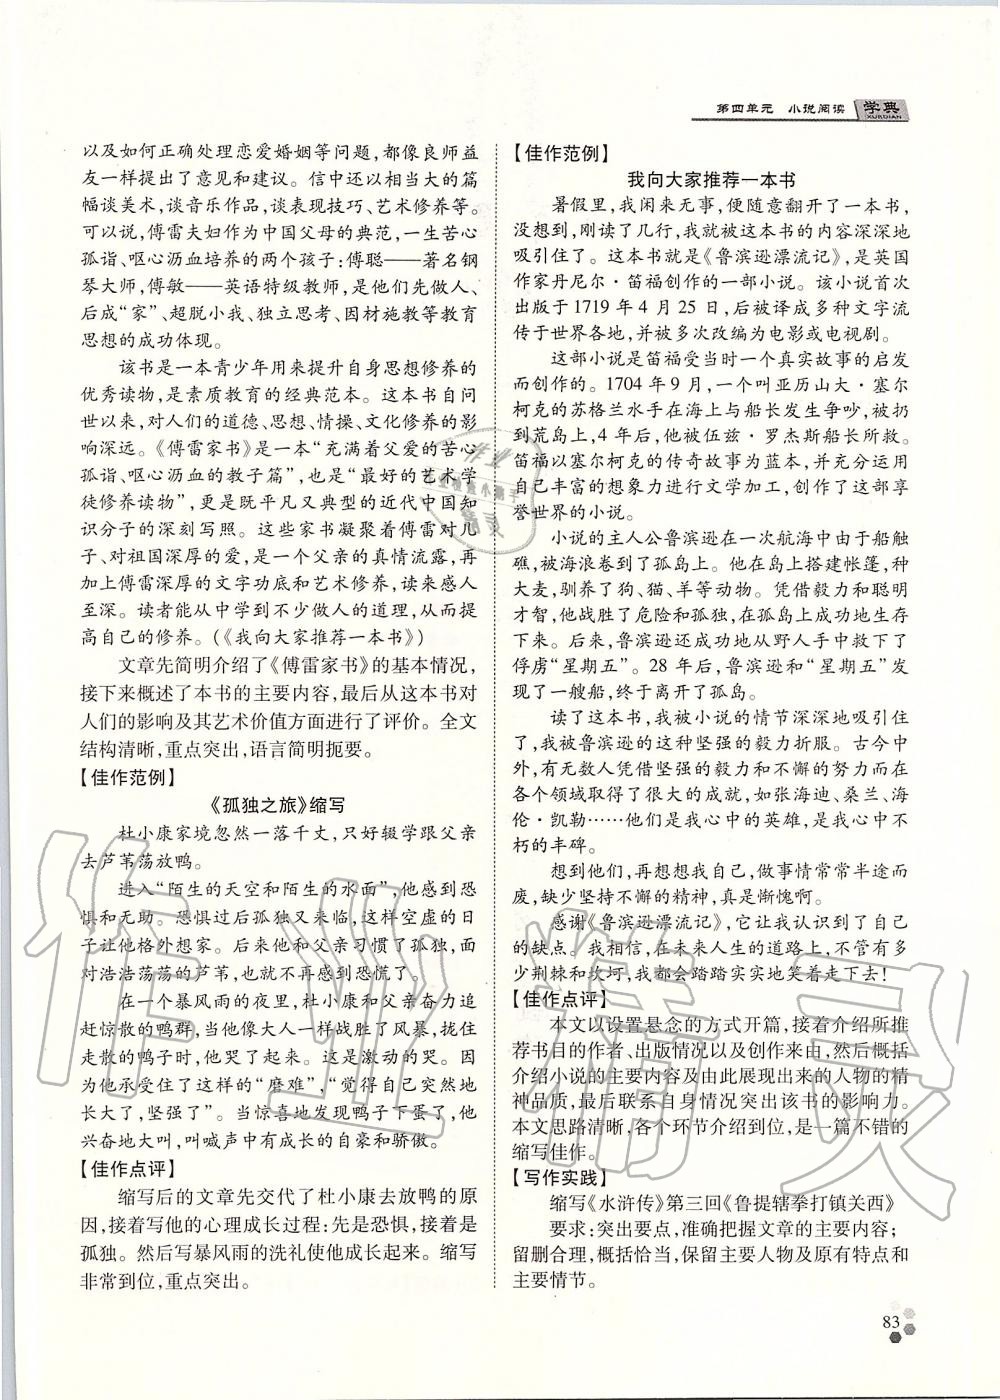 第四单元　小说阅读　学典
XUEDIAN
以及如何正确处理恋爱婚姻等问题,都像良师益
友一样提出了意见和建议。信中还以相当大的篇
幅谈美术,谈音乐作品,谈表现技巧、艺术修养等。
可以说,傅雷夫妇作为中国父母的典范,一生苦心
孤诣、呕心沥血培养的两个孩子:傅聪——著名钢
琴大师,傅敏——英语特级教师,是他们先做人、
后成“家”、超脱小我、独立思考、因材施教等教育
思想的成功体现。
该书是一本青少年用来提升自身思想修养的
优秀读物,是素质教育的经典范本。这本书自问
世以来,对人们的道德、思想、情操、文化修养的影
响深远。《傅雷家书》是一本“充满着父爱的苦心
孤诣、呕心沥血的教子篇”,也是“最好的艺术学
徒修养读物”,更是既平凡又典型的近代中国知
识分子的深刻写照。这些家书凝聚着傅雷对儿
子、对祖国深厚的爱,是一个父亲的真情流露,再
加上傅雷深厚的文字功底和艺术修养,读来感人
至深。读者能从中学到不少做人的道理,从而提
高自己的修养。(《我向大家推荐一本书》)
文章先简明介绍了《傅雷家书》的基本情况,
接下来概述了本书的主要内容,最后从这本书对
人们的影响及其艺术价值方面进行了评价。全文
结构清晰,重点突出,语言简明扼要。
【佳作范例】
《孤独之旅》缩写
杜小康家境忽然一落千丈,只好辍学跟父亲
去芦苇荡放鸭。
进入“陌生的天空和陌生的水面”,他感到恐
惧和无助。恐惧过后孤独又来临,这样空虚的日
子让他格外想家。后来他和父亲习惯了孤独,面
对浩浩荡荡的芦苇,也不再感到恐慌了。
在一个暴风雨的夜里,杜小康和父亲奋力追
赶惊散的鸭群,当他像大人一样战胜了风暴,拢住
走散的鸭子时,他哭了起来。这是激动的哭。因
为他承受住了这样的“磨难”,“觉得自己突然地
长大了,坚强了”。当惊喜地发现鸭子下蛋了,他
兴奋地大叫,叫喊声中有成长的自豪和骄傲。
【佳作点评】
缩写后的文章先交代了杜小康去放鸭的原
因,接着写他的心理成长过程:先是恐惧,接着是
孤独。然后写暴风雨的洗礼使他成长起来。缩写
非常到位,重点突出。
【佳作范例】
我向大家推荐一本书
暑假里,我闲来无事,便随意翻开了一本书,
没想到,刚读了几行,我就被这本书的内容深深地
吸引住了。这本书就是《鲁滨逊漂流记》,是英国
作家丹尼尔·笛福创作的一部小说。该小说首次
出版于1719年4月25日,后被译成多种文字流
传于世界各地,并被多次改编为电影或电视剧。
这部小说是笛福受当时一个真实故事的启发
而创作的。1704年9月,一个叫亚历山大·塞尔
柯克的苏格兰水手在海上与船长发生争吵,被扔
到荒岛上,4年后,他被伍兹·罗杰斯船长所救。
笛福以塞尔柯克的传奇故事为蓝本,并充分运用
自己丰富的想象力进行文学加工,创作了这部享
誉世界的小说。
小说的主人公鲁滨逊在一次航海中由于船触
礁,被海浪卷到了孤岛上。他在岛上搭建帐篷,种
大麦,驯养了狗、猫、羊等动物。凭借毅力和聪明
才智,他战胜了危险和孤独,在孤岛上成功地生存
下来。后来,鲁滨逊还成功地从野人手中救下了
俘虏“星期五”。28年后,鲁滨逊和“星期五”发
现了一艘船,终于离开了孤岛。
读了这本书,我被小说的情节深深地吸引住
了,我被鲁滨逊的这种坚强的毅力折服。古今中
外,有无数人凭借坚强的毅力和不懈的努力而在
各个领域取得了很大的成就,如张海迪、桑兰、海
伦·凯勒……他们是我心中的英雄,是我心中不
朽的丰碑。
想到他们,再想想我自己,做事情常常半途而
废,缺少坚持不懈的精神,真是惭愧啊。
感谢《鲁滨逊漂流记》,它让我认识到了自己
的缺点。我相信,在未来人生的道路上,不管有多
少荆棘和坎坷,我都会踏踏实实地笑着走下去!
【佳作点评】
本文以设置悬念的方式开篇,接着介绍所推
荐书目的作者、出版情况以及创作来由,然后概括
介绍小说的主要内容及由此展现出来的人物的精
神品质,最后联系自身情况突出该书的影响力。
本文思路清晰,各个环节介绍到位,是一篇不错的
缩写佳作。
【写作实践】
缩写《水浒传》第三回《鲁提辖拳打镇关西》
要求:突出要点,准确把握文章的主要内容;
留删合理,概括恰当,保留主要人物及原有特点和
主要情节。
83
作业精灵